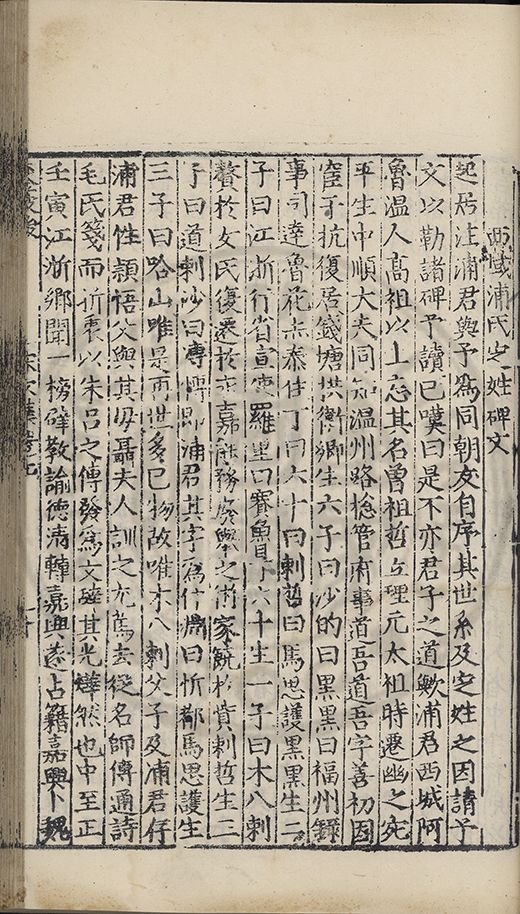 西域浦氏定姓碑文
起居注浦君與予為同朝友自序其世系及定姓之因請予
文以勒諸碑予讀已嘆曰是不亦君子之道歟浦君西域阿
魯溫人高祖以上忘其名曾祖哲立理元太祖時遷幽之宛
平生中順大夫同知溫州路緫管府事道吾道吾字善初因
宦于杭復居錢塘拱衛鄉生六子曰沙的曰黑黑曰福州錄
事司達魯花赤泰住丁曰六十曰剌哲曰馬思護黑黑生二
子曰江浙行省宣使羅里曰賽魯丁六十生一子曰木八剌
贅於女氏復遷於嘉 之 家 於 剌哲生二
子曰道剌沙曰博博即浦君其字為仲淵曰忻都馬思護生
三子曰哈山唯 再世多已物故唯木八剌父子及浦君存
浦君性穎悟父與其母聶夫人訓之尤篤去從名師傅通詩
毛氏箋而折衷以朱呂之傳發為文辭其光燁然也中至正
壬寅江浙鄉闈一榜辟教諭德清轉嘉興遂占籍嘉興卜魏